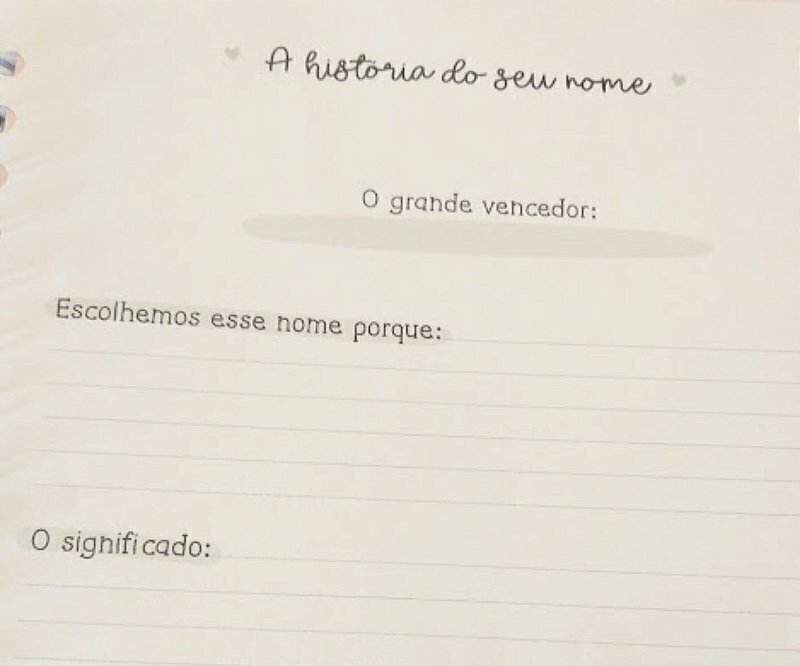 A história do seu nome
O grande vencedor:
Escolhemos esse nome porque:
O significado: